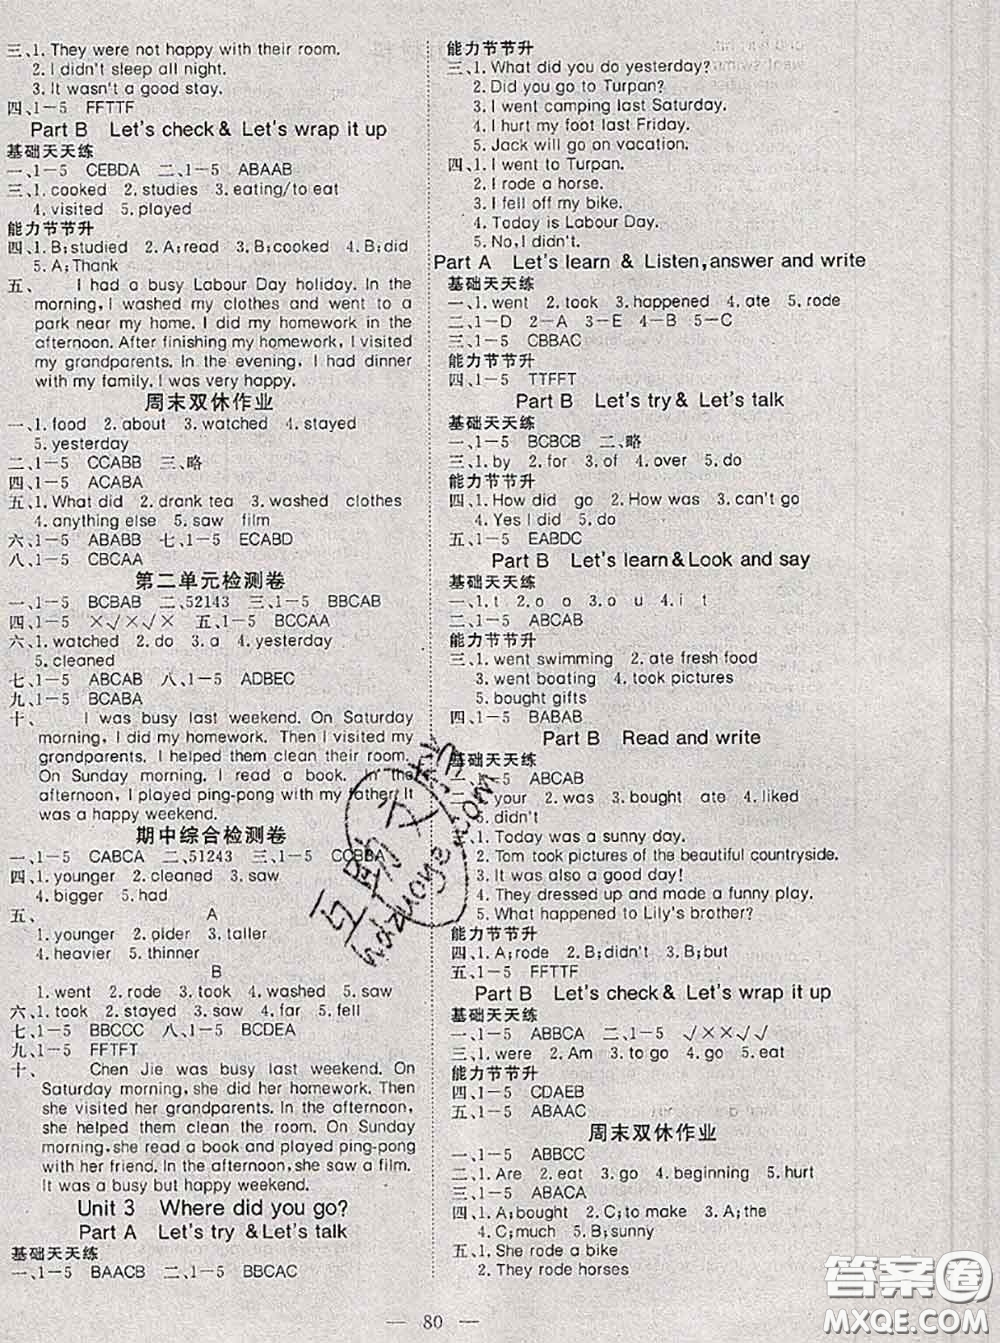 三、1. They were not happy with their room.
2. I didn't sleep all night.
3. It wasn't a good stay.
四、1-5 FFTTF
Part B Let's check & Let's wrap it up
基础天天练
一、1-5 CEBDA 二、1-5 ABAAB
三、1. cooked 2. studies 3. eating/to eat
4. visited 5. played
能力节节升
四、1. B;studied 2. A;read 3. B;cooked 4. B;did
5. A;Thank
五、 I had a busy Labour Day holiday. In the
morning, I washed my clothes and went to a
park near my home. I did my homework in the
afternoon. After finishing my homework, I visited
my grandparents. In the evening, I had dinner
with my family. I was very happy.
周末双休作业
一、1. food 2. about 3. watched 4. stayed
5. yesterday
二、1-5 CCABB 三、略
四、1-5 ACABA
五、1. What did 2. drank tea 3. washed clothes
4. anything else 5. saw film
六、1-5 ABABB 七、1-5 ECABD
八、1-5 CBCAA
第二单元检测卷
一、1-5 BCBAB 二、52143 三、1-5 BBCAB
四、1-5 ×√×√× 五、1-5 BCCAA
六、1. watched 2. do 3. a 4. yesterday
5. cleaned
七、1-5 ABCAB 八、1-5 ADBEC
九、1-5 BCABA
十、 I was busy last weekend. On Saturday
morning, I did my homework. Then I visited my
grandparents. I helped them clean their room.
On Sunday morning, I read a book. In the
afternoon, I played ping-pong with my father. It
was a happy weekend.
期中综合检测卷
一、1-5 CABCA 二、51243 三、1-5 CCBBA
四、1. younger 2. cleaned 3. saw
4. bigger 5. had
五、 A
1. younger 2. older 3. taller
4. heavier 5. thinner
B
1. went 2. rode 3. took 4. washed 5. saw
六、1. took 2. stayed 3. saw 4. far 5. fell
七、1-5 BBCCC 八、1-5 BCDEA
九、1-5 FFTFT
十、 Chen Jie was busy last weekend. On
Saturday morning, she did her homework. Then
she visited her grandparents. In the afternoon,
she helped them clean the room. On Sunday
morning, she read a book and played ping-pong
with her friend. In the afternoon, she saw a film.
It was a busy but happy weekend.
Unit 3 Where did you go?
Part A Let's try & Let's talk
基础天天练
一、1-5 BAACB 二、1-5 BBCAC
能力节节升
三、1. What did you do yesterday?
2. Did you go to Turpan?
3. I went camping last Saturday.
4. I hurt my foot last Friday.
5. Jack will go on vacation.
四、1. I went to Turpan.
2. I rode a horse.
3. I fell off my bike.
4. Today is Labour Day.
5. No, I didn't.
Part A Let's learn & Listen, answer and write
基础天天练
一、1. went 2. took 3. happened 4. ate 5. rode
二、1-D 2-A 3-E 4-B 5-C
三、1-5 CBBAC
能力节节升
四、1-5 TTFFT
Part B Let's try & Let's talk
基础天天练
一、1-5 BCBCB 二、略
三、1. by 2. for 3. of 4. over 5. do
能力节节升
四、1. How did go 2. How was 3. can't go
4. Yes I did 5. do
五、1-5 EABDC
Part B Let's learn & Look and say
基础天天练
一、1. t 2. o o 3. o u 4. i t
二、1-5 ABCAB
能力节节升
三、1. went swimming 2. ate fresh food
3. went boating 4. took pictures
5. bought gifts
四、1-5 BABAB
Part B Read and write
基础天天练
一、1-5 ABCAB
二、1. your 2. was 3. bought ate 4. liked
5. didn't
三、1. Today was a sunny day.
2. Tom took pictures of the beautiful countryside.
3. It was also a good day!
4. They dressed up and made a funny play.
5. What happened to Lily's brother?
能力节节升
四、1. A;rode 2. B;didn't 3. B;but
五、1-5 FFTTF
Part B Let's check & Let's wrap it up
基础天天练
一、1-5 ABBCA 二、1-5 √××√√
三、1. were 2. Am 3. to go 4. go 5. eat
能力节节升
四、1-5 CDAEB
五、1-5 ABAAC
周末双休作业
一、1-5 ABBCC
二、1. Are 2. eat 3. go 4. beginning 5. hurt
三、1-5 ABACA
四、1. A;bought 2. C;to make 3. A;the
4. C;much 5. B;sunny
五、1. She rode a bike
2. They rode horses
— 80 —
答案圈
MXQE.COM